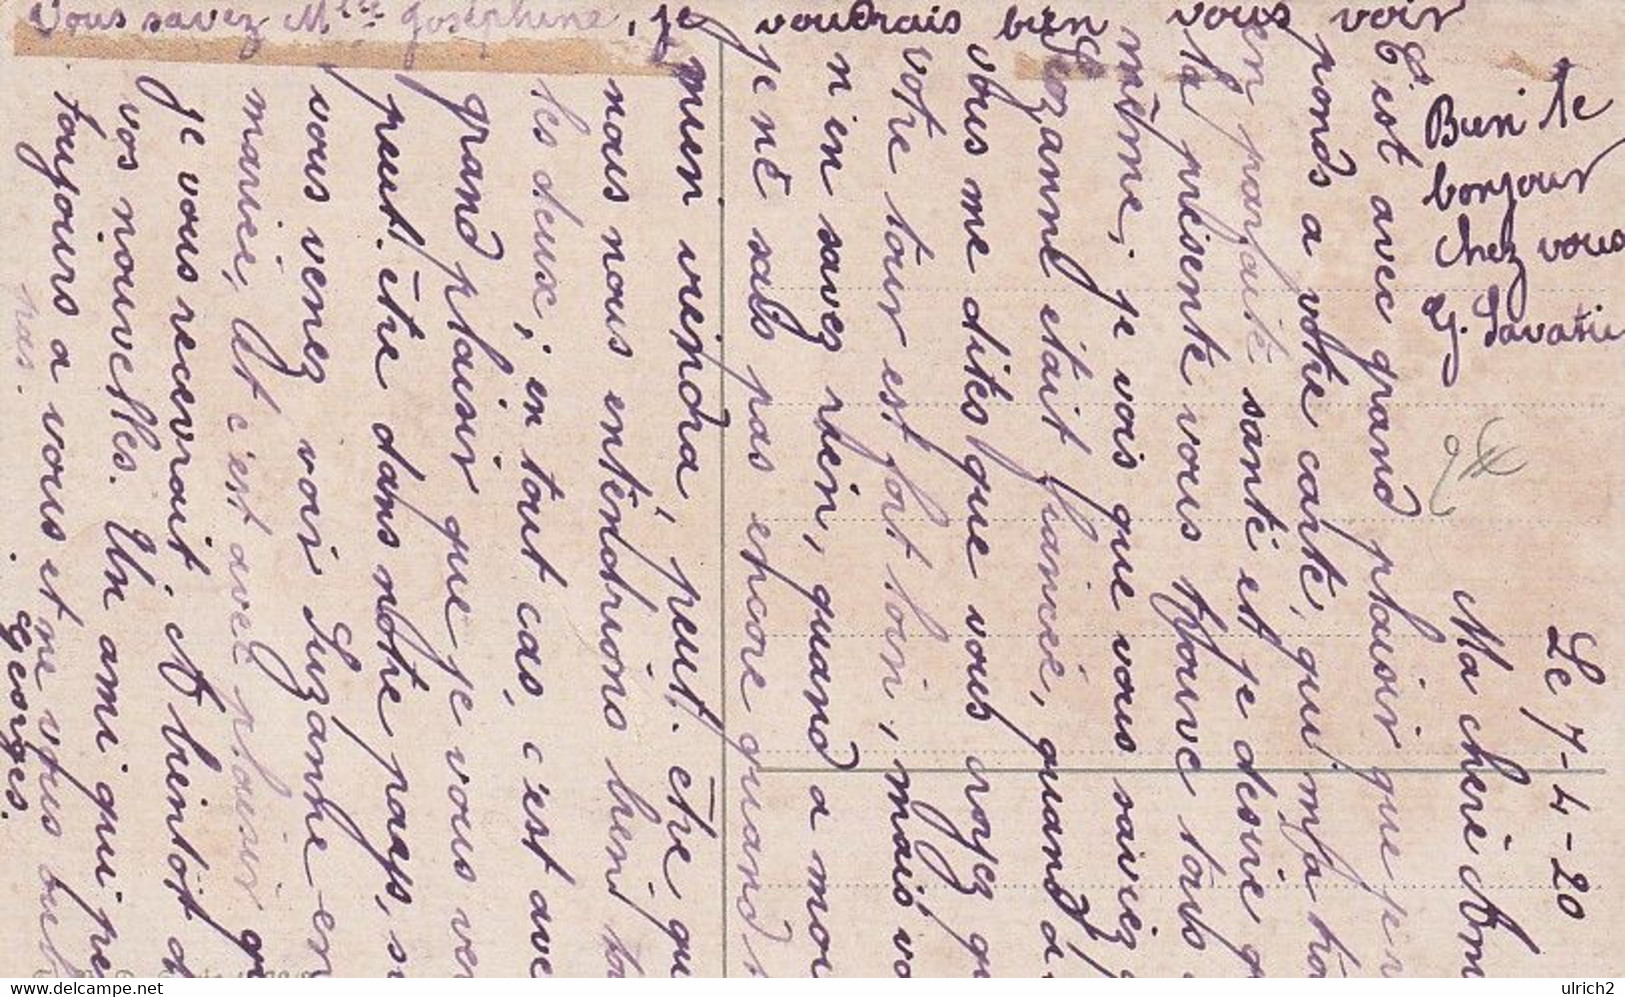 Vous savez Mlle Joséphine, je voudrais bien vous voir
Bien le
bonjour
chez vous
G. Savatie
Le 7-4-20
Ma chère Am
C'est avec grand plaisir que je r
ponds a votre carte, qui m'a tro
en parfaite santé et je désire q
la présente vous trouve tous
même, je vois que vous saviez
Suzanne était fiancée, quand a
vous me dites que vous croyez q
votre tour est fort loin, mais vo
n en savez rien, quand a moi
je ne sais pas encore quand
mien viendra, peut-être qu
nous nous entendrions bien to
les deux, en tout cas, c'est ave
grand plaisir que je vous ver
peut-être dans notre pays, s
vous venez voir Suzanne en
mariée, et c'est avec plaisir q
je vous recevrait. A bientôt d
vos nouvelles. Un ami qui pe
toujours a vous et ne vous oubl
pas.
Georges.
ulrich2